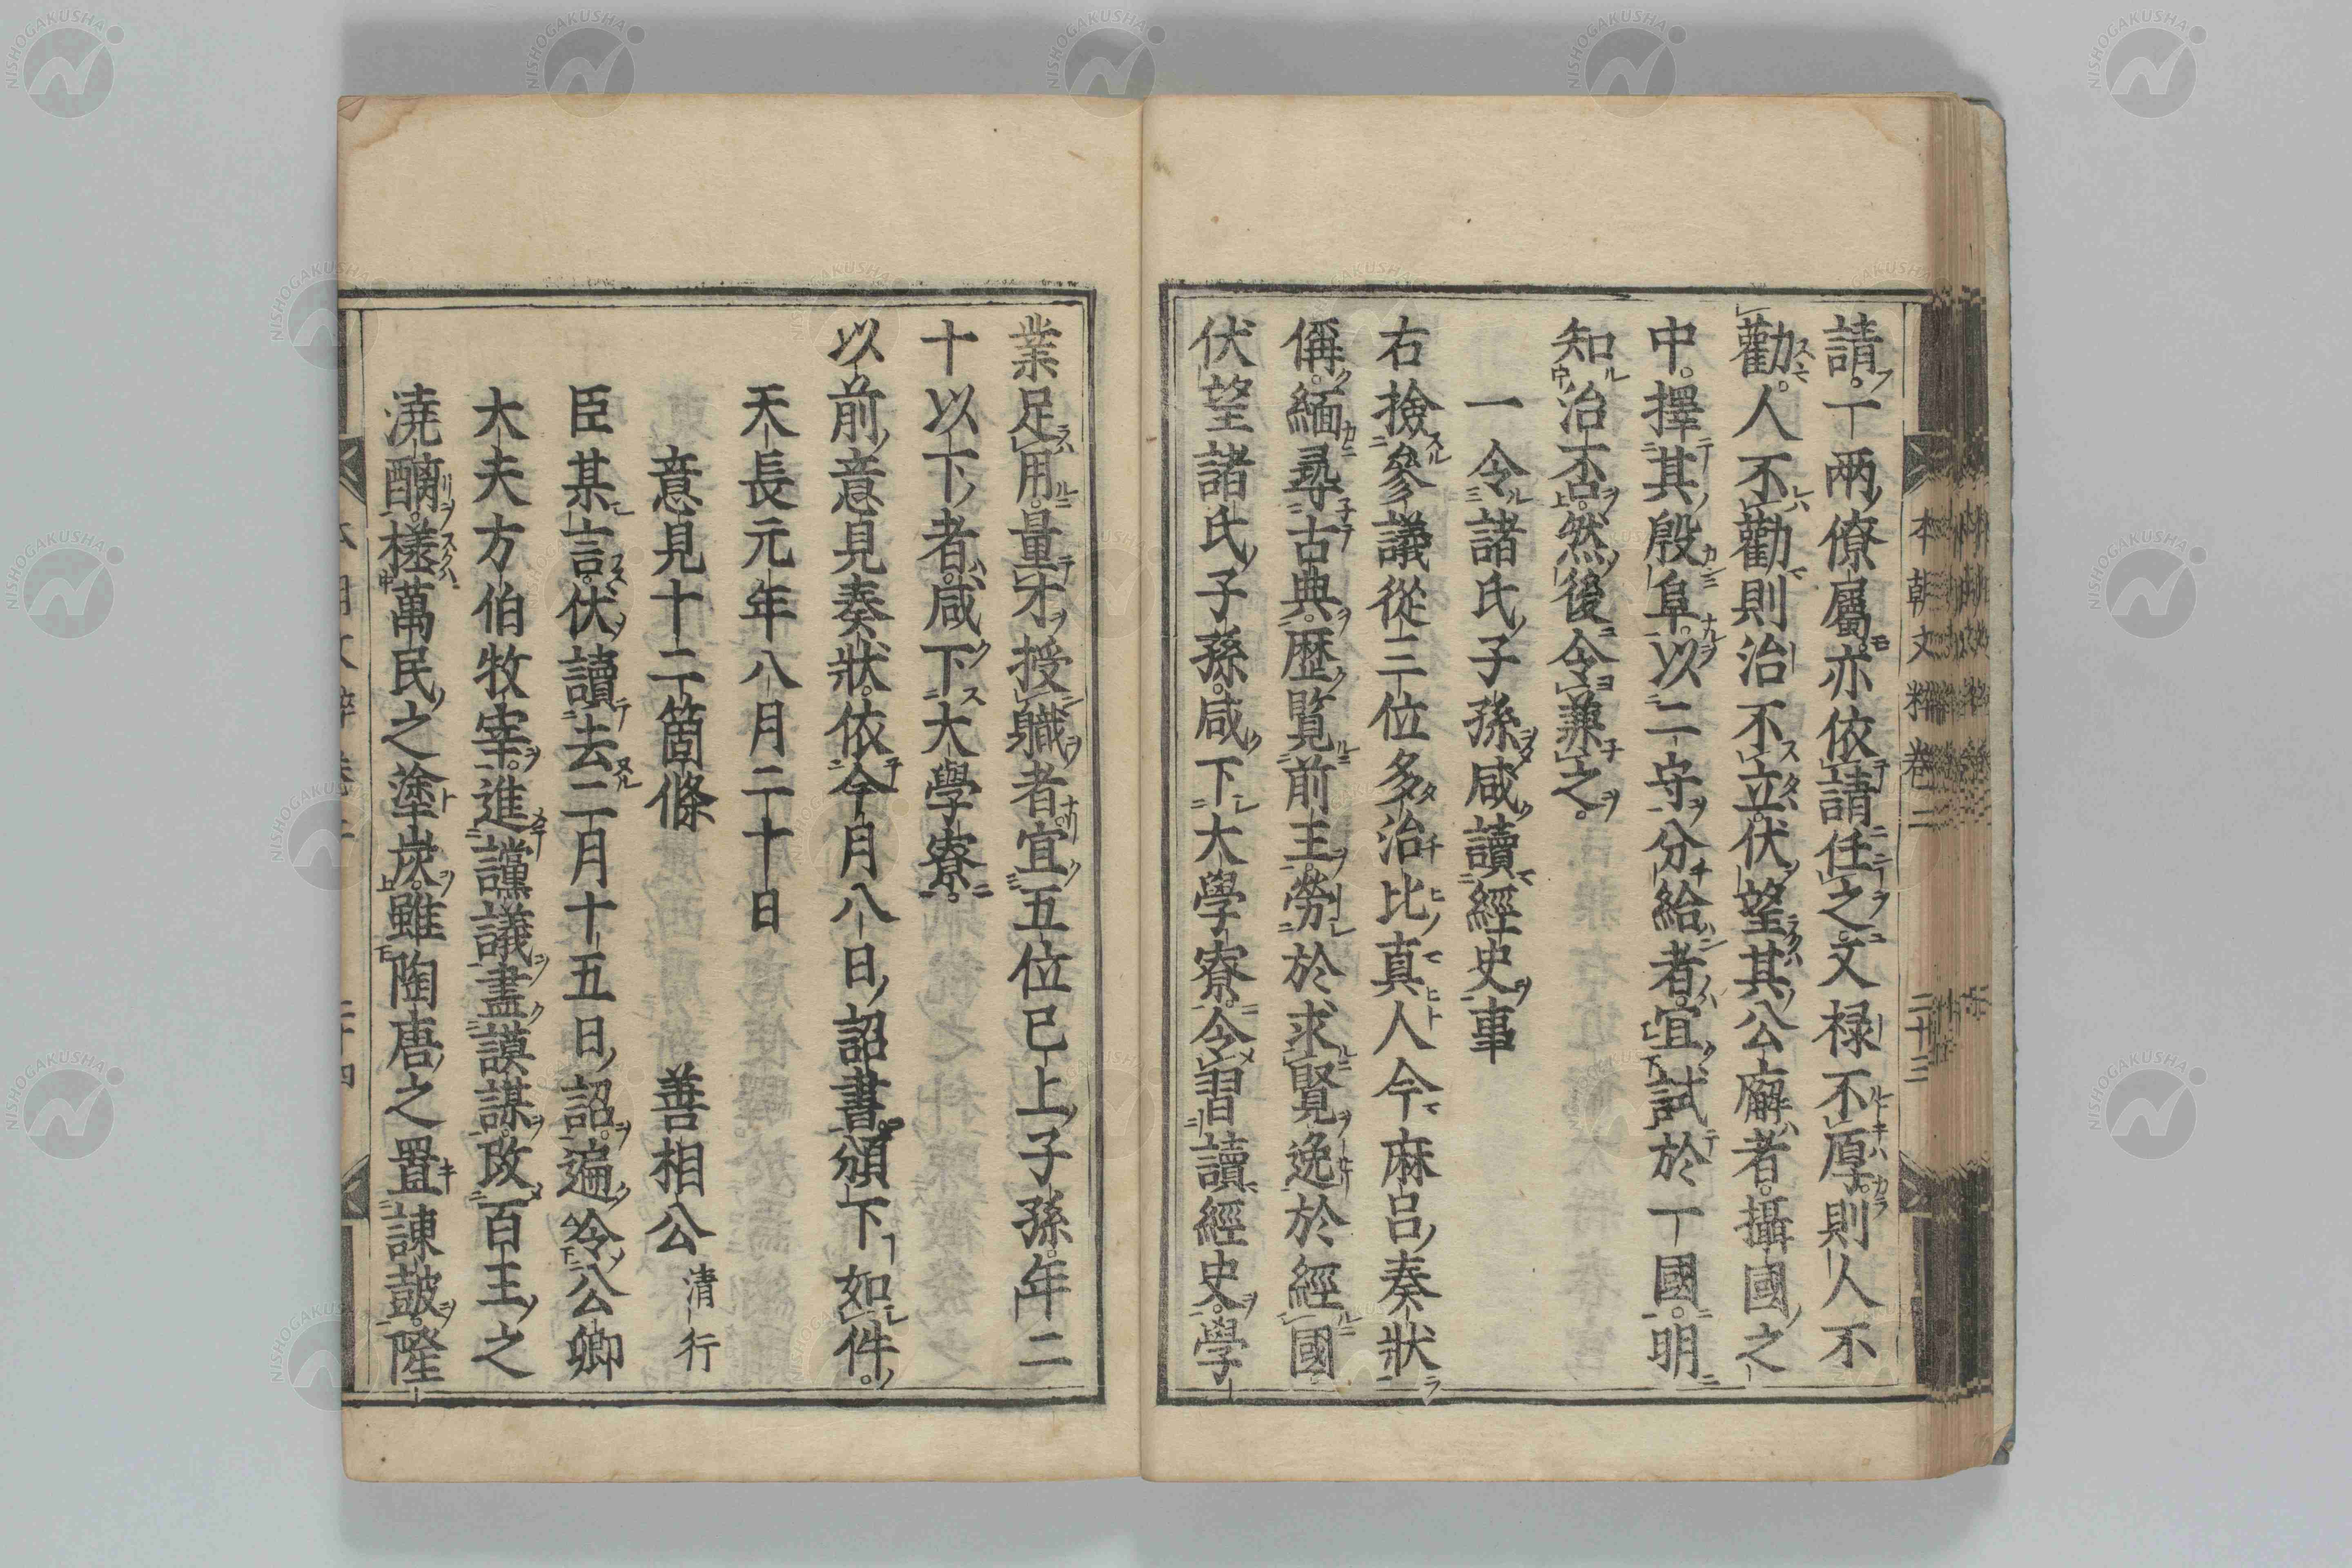 請。丁兩僚屬。亦依請任之。又祿不厚。則人不
勸。人不勸則治不立。伏望其公廨者。攝國之
中。擇其殷阜。以二守分給者。宜試於一國。明
知治否。然後令兼之。
一令諸氏子孫咸讀經史事
右撿參議從三位多治比真人今麻呂奏狀
偁。緬尋古典。歷覽前王。勞於求賢。逸於經國
伏望諸氏子孫。咸下大學寮。令習讀經史。學
業足用。量才授職者。宜五位已上子孫。年二
十以下者。咸下大學寮。
以前意見奏狀。依今月八日詔書。頒下如件。
天長元年八月二十日
意見十二箇條 善相公 清行
臣某言。伏讀去二月十五日詔。遍令公卿
大夫方伯牧宰。進讜議盡謨謀。改百王之
澆醨。拯萬民之塗炭。雖陶唐之置諫鼓。隆
本朝文粹卷二
二十三
NISHOGAKUSHA